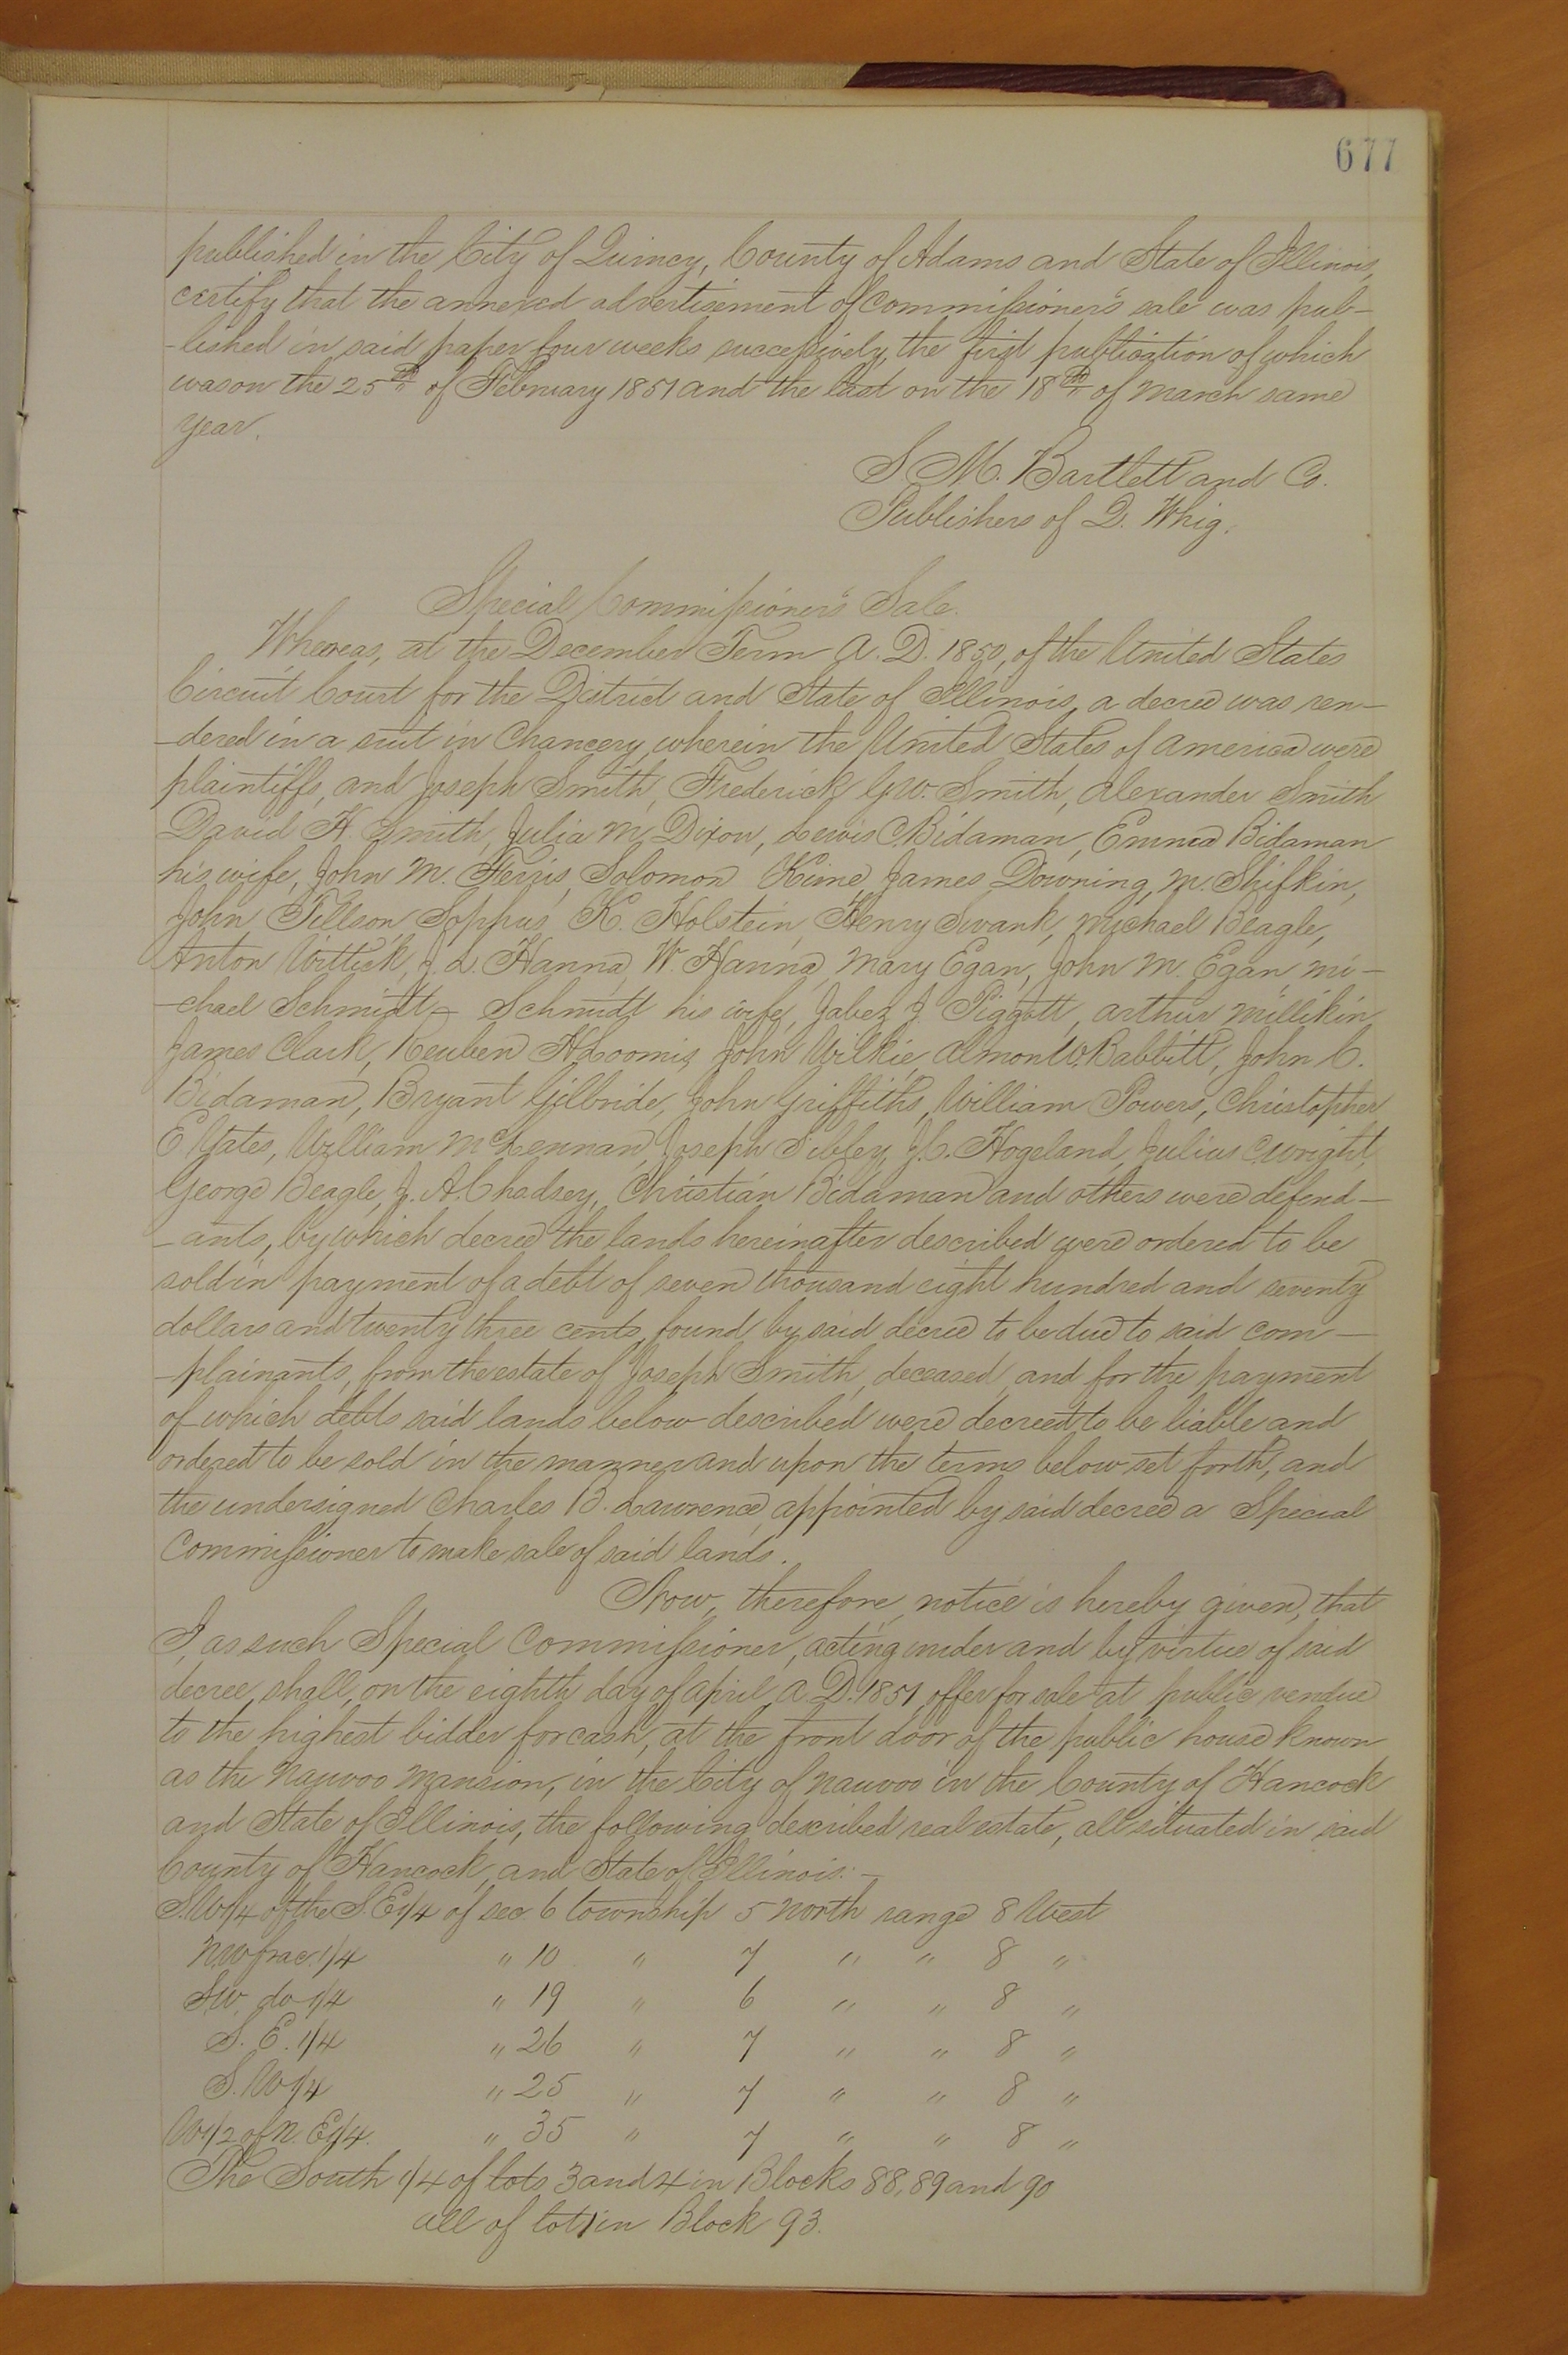 677
published in the City of Quincy, County of Adams and State of Illinois,
certify that the annexed advertisement of Commissioner's sale was pub-
-lished in said paper four weeks successively, the first publication of which
was on the 25th of February 1851 and the last on the 18th of March same
year.
S. M. Bartlett and Co.
Publishers of Q. Whig.
Special Commissioner's Sale.
Whereas, at the December Term A. D. 1850, of the United States
Circuit Court for the District and State of Illinois, a decree was ren-
-dered in a suit in Chancery, wherein the United States of America were
plaintiffs, and Joseph Smith, Frederick G. W. Smith, Alexander Smith
David H. Smith, Julia M. Dixon, Lewis C. Bidaman, Emma Bidaman
his wife, John M. Ferris, Solomon Kime, James Downing, M. Shifkin,
John Tillson Soppus, K. Holstein, Henry Swank, Michael Beagle,
Anton Wittick, J. L. Hanna, W. Hanna, Mary Egan, John M. Egan, Mi-
-chael Schmidt, — Schmidt his wife, Jabez J. Piggott, Arthur Millikin,
James Clark, Reuben H. Loomis, John Wilkie, Almon W. Babbitt, John C.
Bidaman, Bryant Gilbride, John Griffiths, William Powers, Christopher
E Yates, William McLennan, Joseph Sibley, J. C. Hogeland, Julius C. Wright,
George Beagle, J. A. Chadsey, Christian Bidaman and others were defend-
-ants, by which decree the lands hereinafter described were ordered to be
sold in payment of a debt of seven thousand eight hundred and seventy
dollars and twenty three cents, found by said decree to be due to said com-
-plainants, from the estate of Joseph Smith, deceased, and for the payment
of which debts said lands below described were decreed to be liable and
ordered to be sold in the manner and upon the terms below set forth, and
the undersigned Charles B. Lawrence, appointed by said decree a Special
Commissioner to make sale of said lands.
Now, therefore, notice is hereby given, that
I, as such Special Commissioner, acting under and by virtue of said
decree, shall, on the eighth day of April, A. D. 1851 offer for sale at public vendue
to the highest bidder for cash, at the front door of the public house known
as the Nauvoo Mansion, in the City of Nauvoo in the County of Hancock
and State of Illinois, the following described real estate, all situated in said
County of Hancock, and State of Illinois: —
S.W1/4 of the S.E1/4 of sec 6 township 5 North range 8 West
N.W frac. 1/4 " 10 " 7 " " 8 "
S.W. do 1/4 " 19 " 6 " " 8 "
S. E. 1/4 " 26 " 7 " " 8 "
S. W 1/4 " 25 " 7 " " 8 "
W1/2 of N. E1/4. " 35 " 7 " " 8 "
The South 1/4 of lots 3 and 4 in Blocks 88, 89 and 90
all of lot 1 in Block 93.